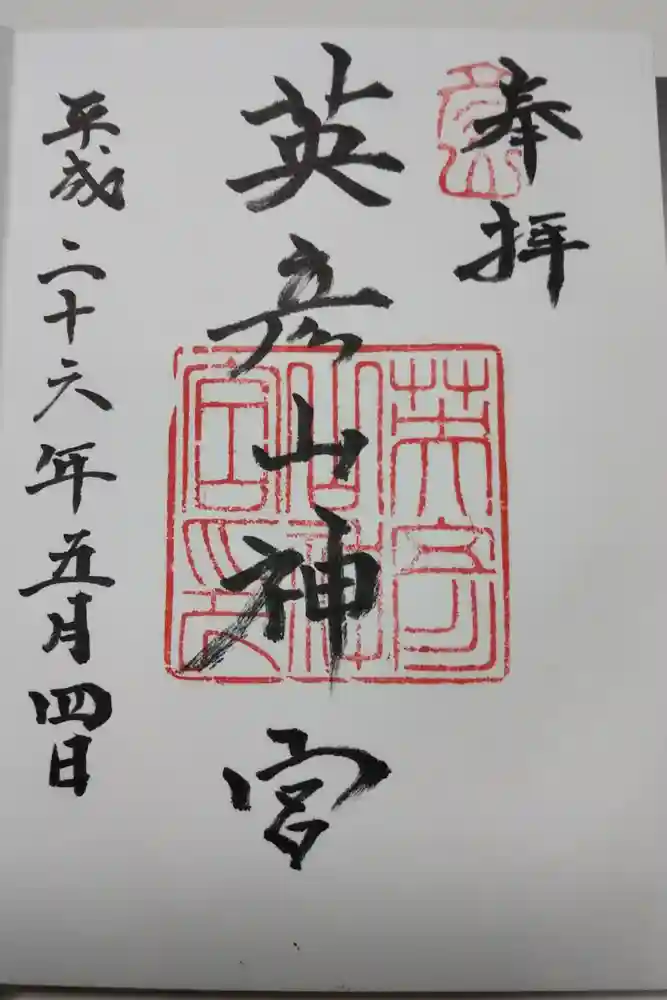 奉拝
英彦山神宮
平成二十六年五月四日